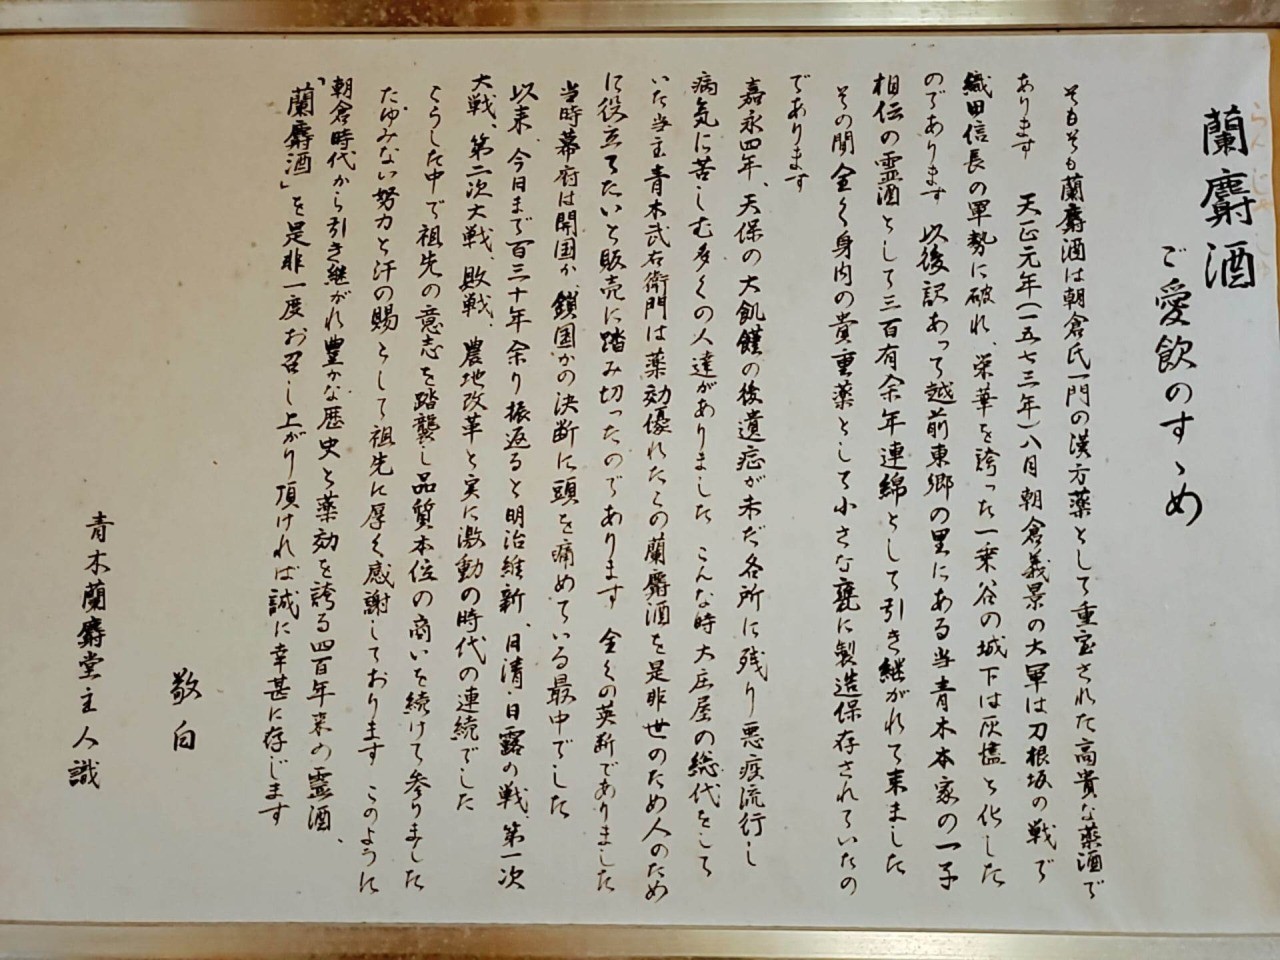 蘭麝酒
らんじゃしゅ
ご愛飲のすゝめ
そもそも蘭麝酒は朝倉氏一門の漢方薬として重宝された高貴な薬酒で
あります 天正元年(一五七三年)八月朝倉義景の大軍は刀根坂の戦で
織田信長の軍勢に破れ、栄華を誇った一乗谷の城下は灰塵と化した
のであります 以後訳あって越前東郷の里にある当青木本家の一子
相伝の霊酒として三百有余年連綿として引き継がれて来ました
その間全く身内の貴重薬として小さな甕に製造保存されていたの
であります
嘉永四年、天保の大飢饉の後遺症が未だ各所に残り悪疫流行し
病気に苦しむ多くの人達がありました こんな時大庄屋の総代をして
いた当主青木武右衛門は薬効優れたこの蘭麝酒を是非世のため人のため
に役立てたいと販売に踏み切ったのであります 全くの英断でありました
当時幕府は開国か、鎖国かの決断に頭を痛めている最中でした
以来、今日まで百三十年余り振返ると明治維新、日清・日露の戦、第一次
大戦、第二次大戦、敗戦、農地改革と実に激動の時代の連続でした
こうした中で祖先の意志を踏襲し品質本位の商いを続けて参りました
たゆみない努力と汗の賜として祖先に厚く感謝しております このように
朝倉時代から引き継がれ豊かな歴史と薬効を誇る四百年来の霊酒、
「蘭麝酒」を是非一度お召し上がり頂ければ誠に幸甚に存じます
敬白
青木蘭麝堂主人識